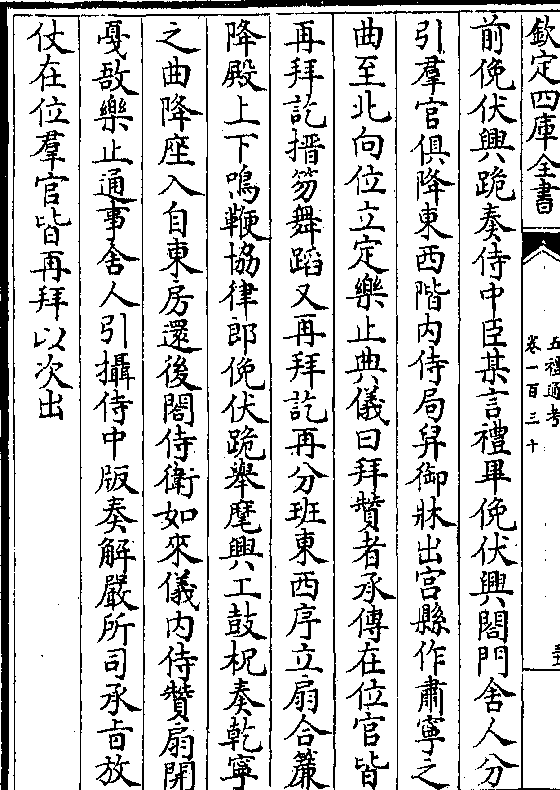 欽定四庫全書
五禮通考
卷一百三十
前俛伏興跪奏侍中臣某言禮畢俛伏興閤門舍人分
引羣官俱降東西階内侍局舁御牀出宫縣作肅寧之
曲至北向位立定樂止典儀曰拜贊者承傳在位官皆
再拜訖搢笏舞蹈又再拜訖再分班東西序立扇合簾
降殿上下鳴鞭協律郎俛伏跪舉麾興工鼓柷奏乾寧
之曲降座入自東房還後閤侍衛如來儀内侍贊扇開
戞敔樂止通事舍人引攝侍中版奏解嚴所司承㫖放
仗在位羣官皆再拜以次出